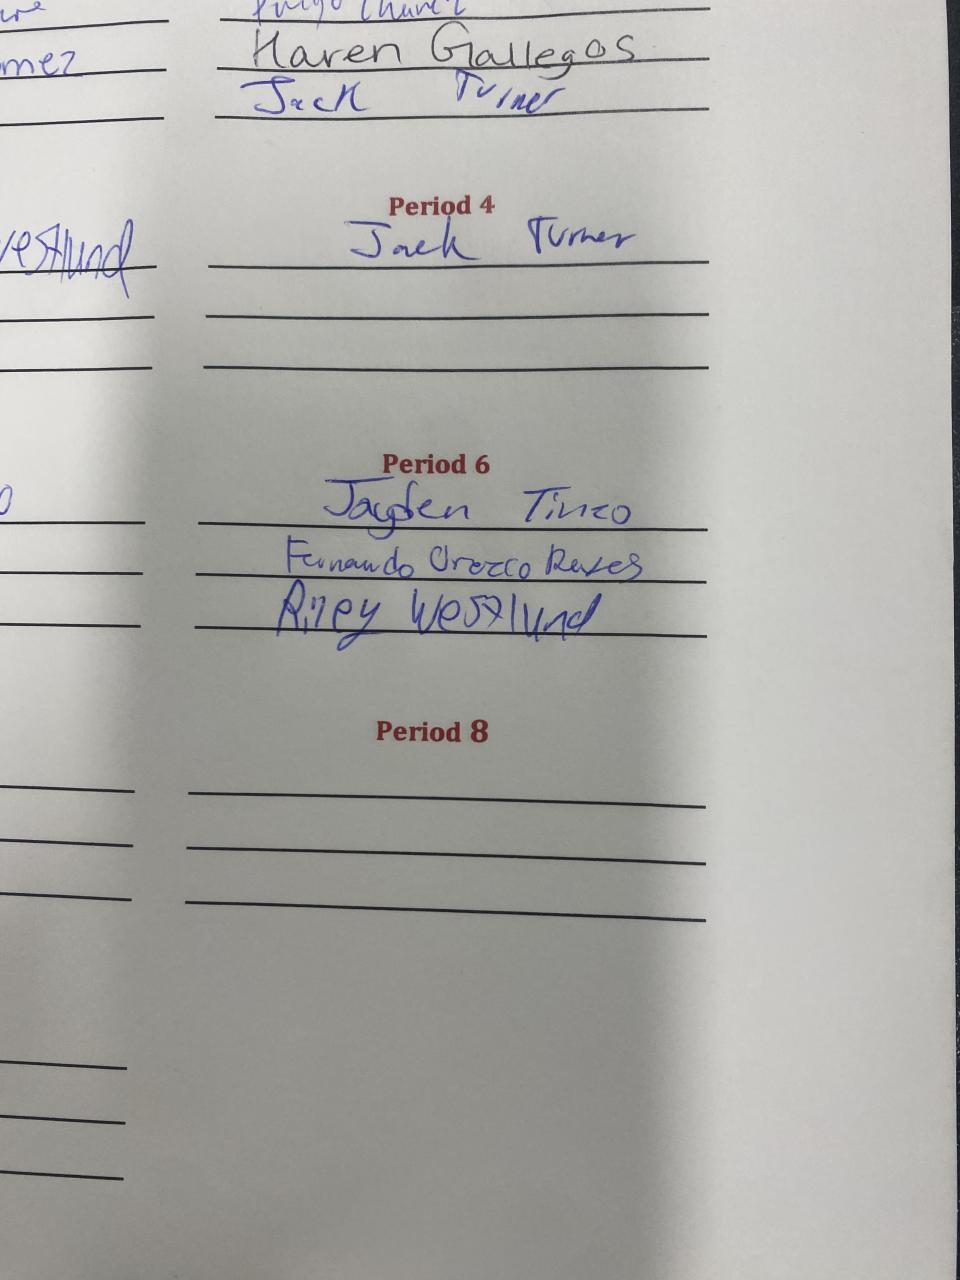 mez
Haren Gallegos
Jack Turner
Period 4
Jack Turner
Period 6
Jayden Tinco
Fernando Orozco Reyes
Riley Westlund
Period 8